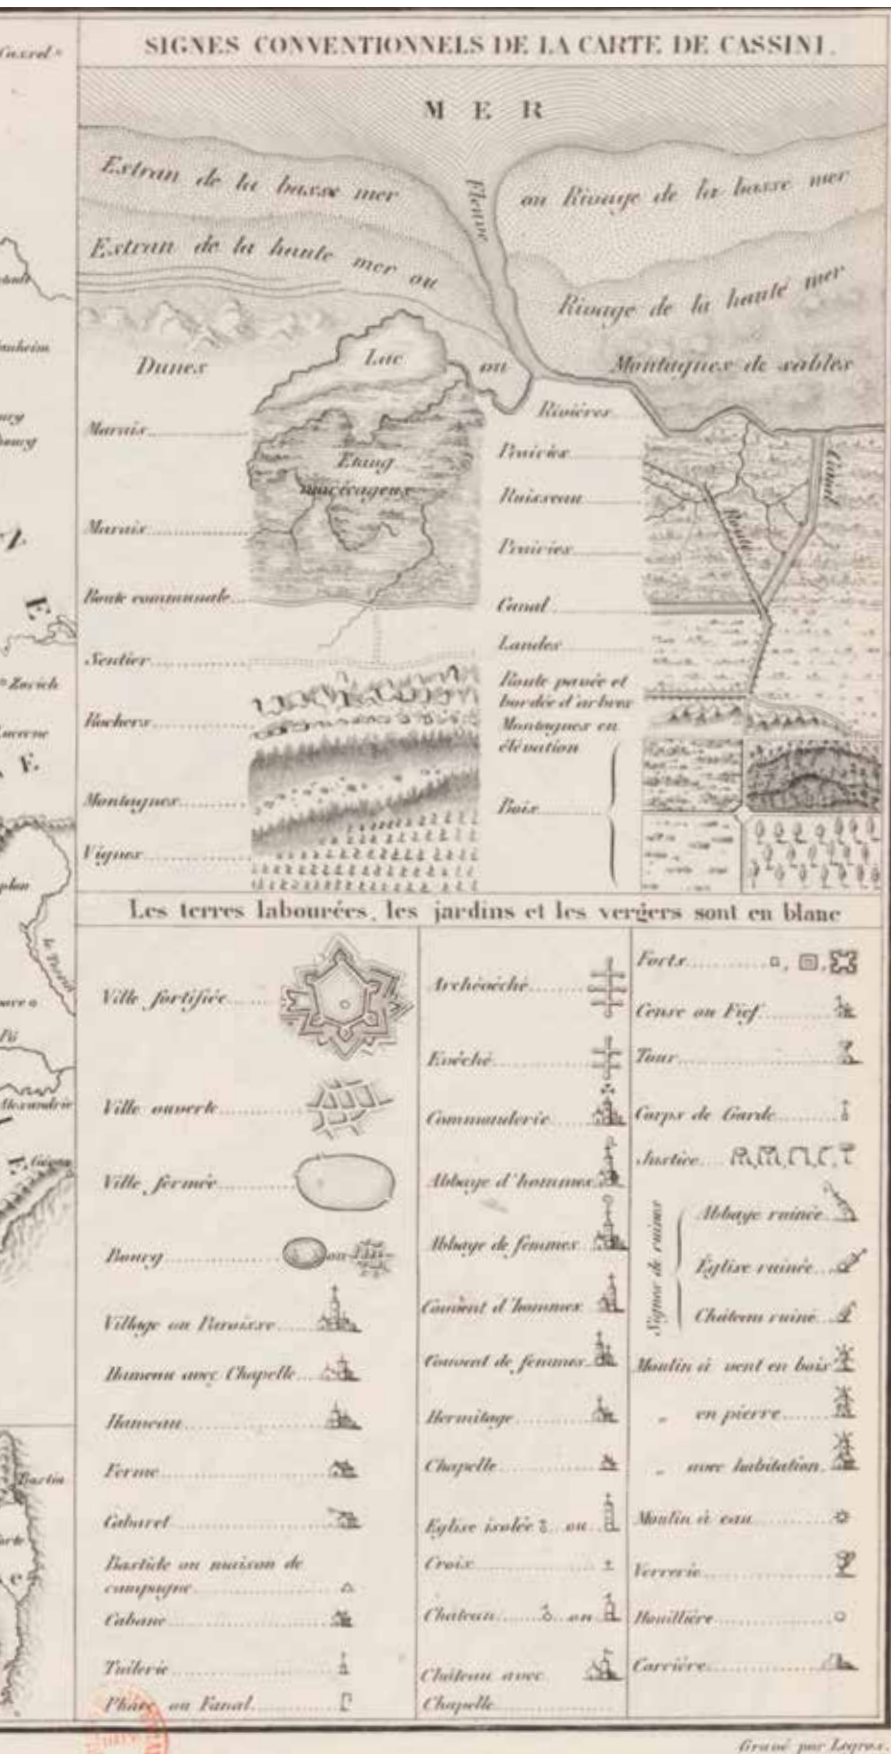 SIGNES CONVENTIONNELS DE LA CARTE DE CASSINI.
MER
Extran de la basse mer
ou Rivage de la basse mer
Fleuve
Extran de la haute mer ou
Rivage de la haute mer
Dunes
Lac
ou
Montagnes de sables
Marais
Etang
marécageux
Marais
Route communale
Sentier
Rochers
Montagnes
Vignes
Rivières
Prairies
Ruisseau
Prairies
Canal
Landes
Route pavée et
bordée d'arbres
Montagnes en
élévation
Bois
Canal
Route
Les terres labourées, les jardins et les vergers sont en blanc
Ville fortifiée
Ville ouverte
Ville fermée
Bourg ou
Village ou Paroisse
Hameau avec Chapelle
Hameau
Ferme
Cabaret
Bastide ou maison de
campagne
Cabane
Tuilerie
Phare ou Fanal
Archévéché
Evéché
Commanderie
Abbaye d'hommes
Abbaye de femmes
Couvent d'hommes
Couvent de femmes
Hermitage
Chapelle
Eglise isolée ou
Croix
Château ou
Château avec
Chapelle
Forts
Cense ou Fief
Tour
Corps de Garde
Justice
Signes de ruines
Abbaye ruinée
Église ruinée
Château ruiné
Moulin à vent en bois
" en pierre
" avec habitation
Moulin à eau
Verrerie
Houillière
Carrière
Zurich
Lucerne
Alexandrie
Bastia
Gravé par Legros.